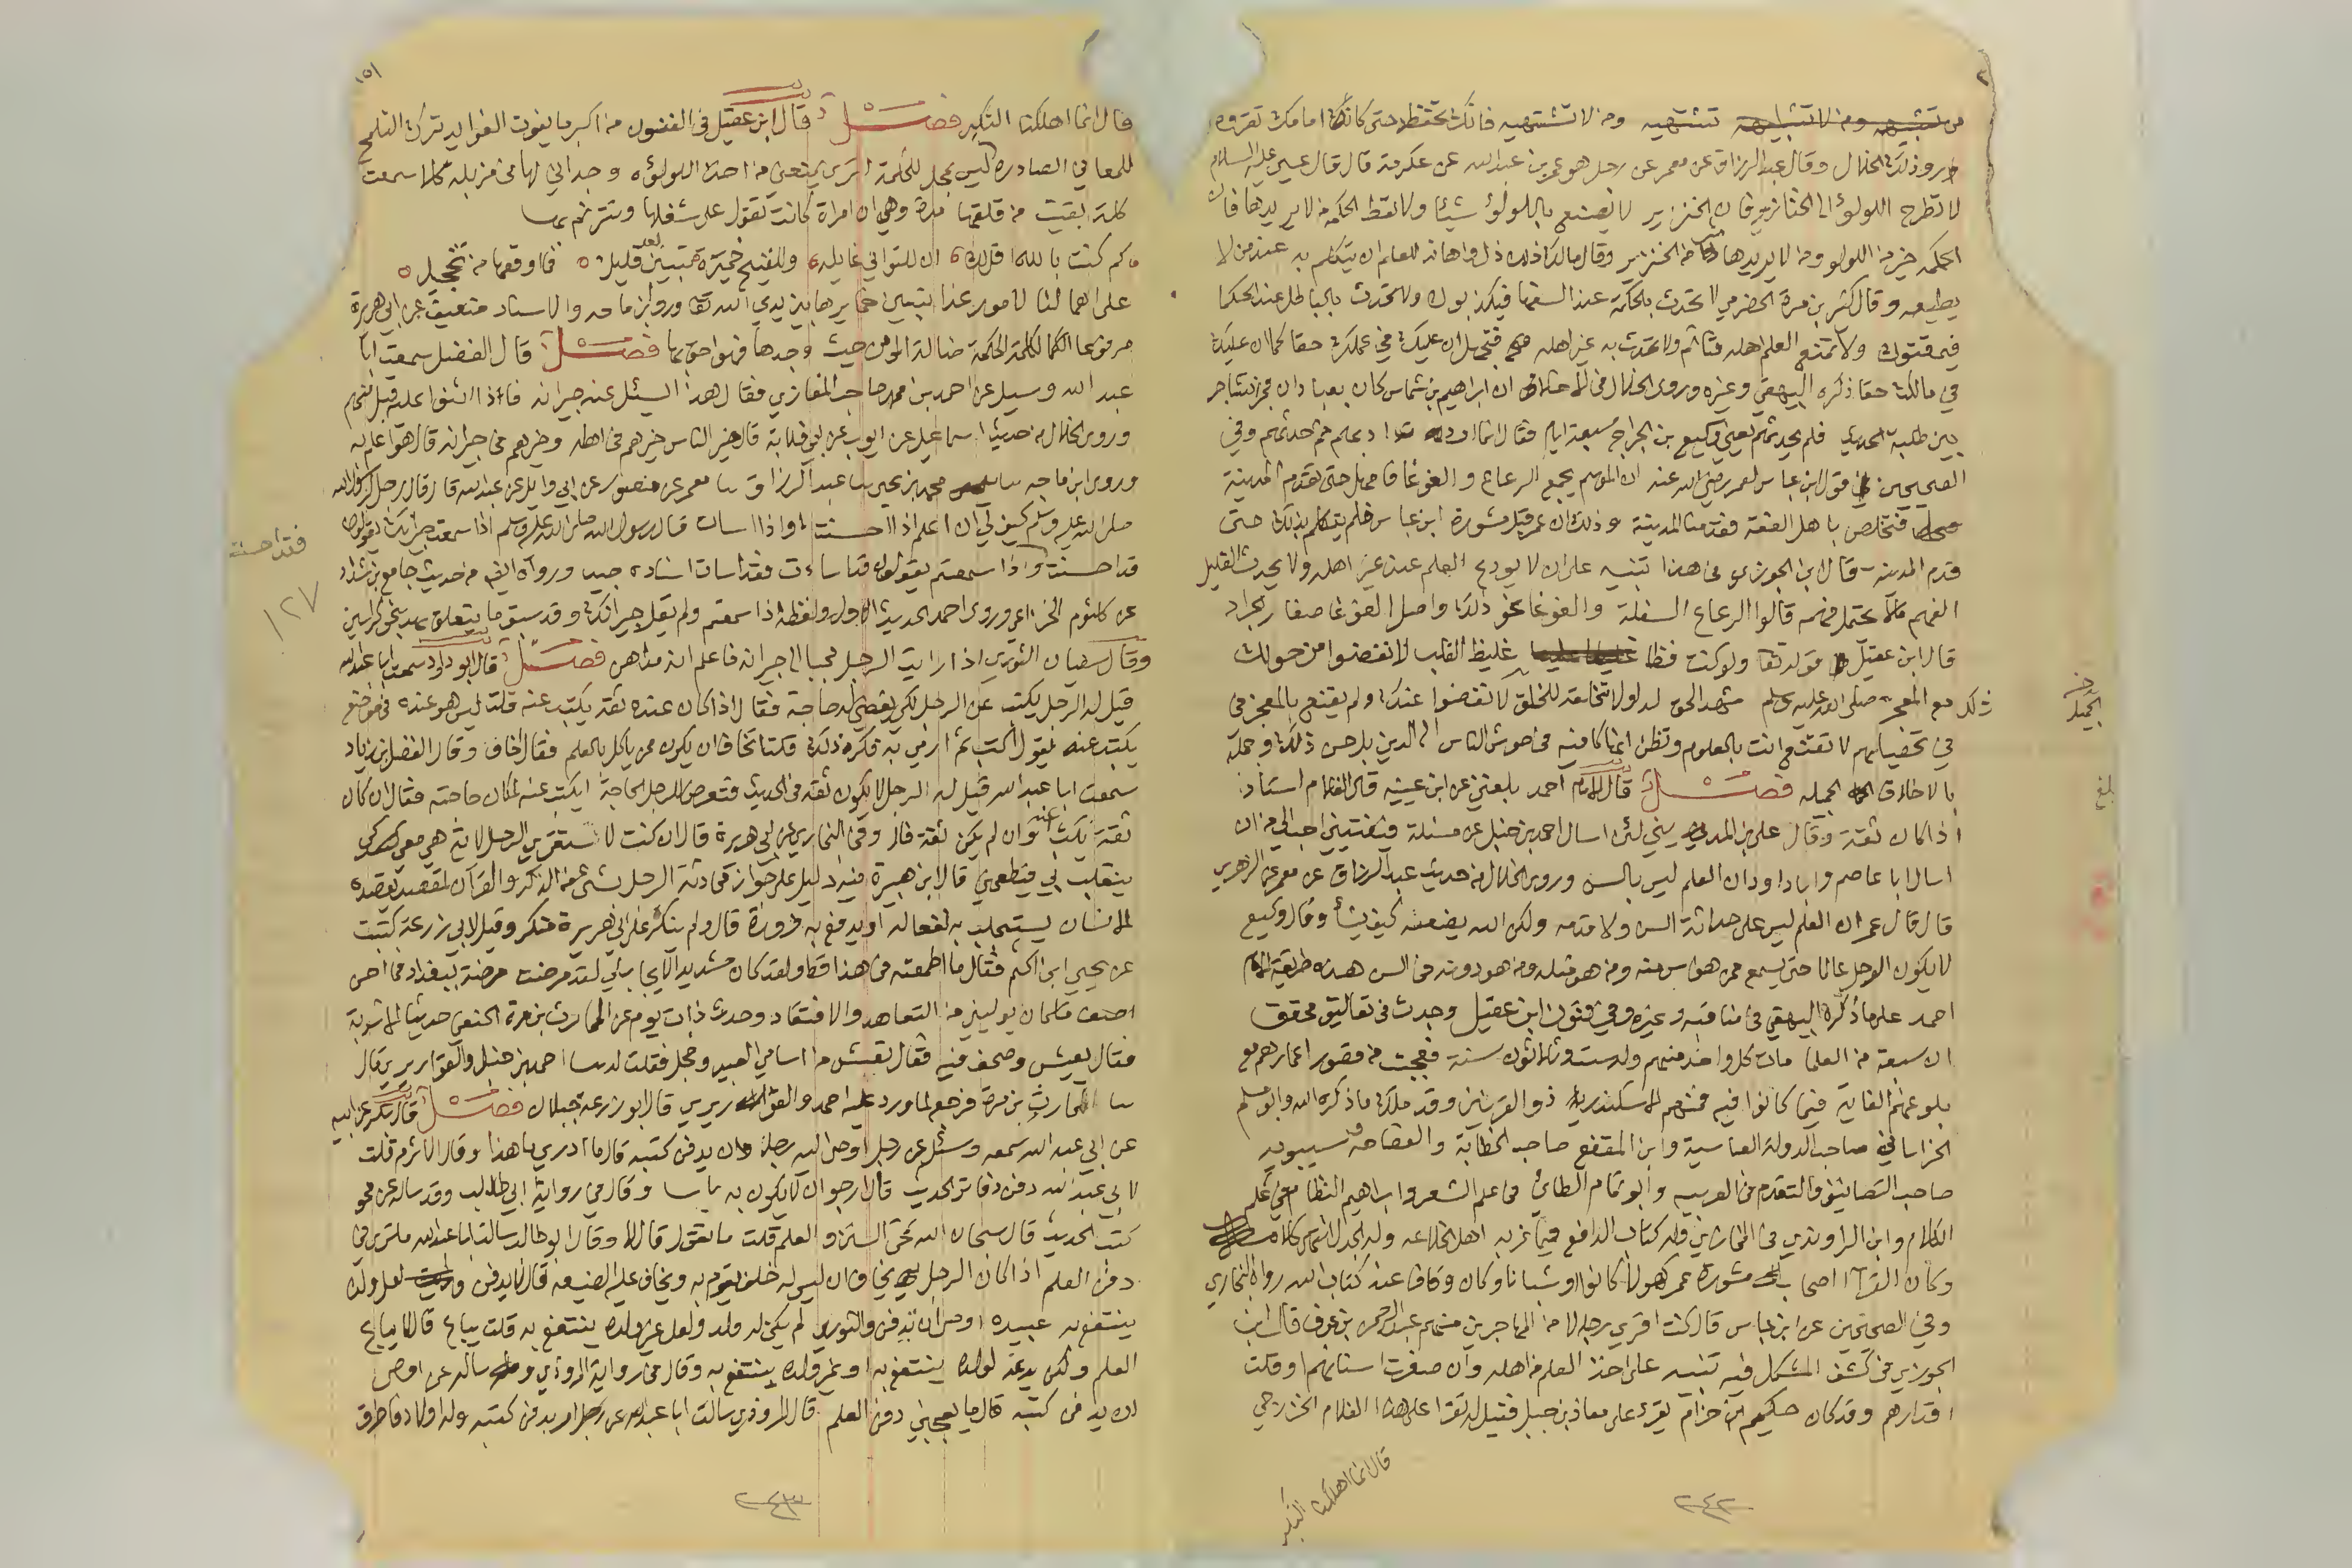 من تشتهيه ومن لا تشتهيه فانك تحفظه حتى كانك امامك تقرؤه
رواه وذكره الخلال وقال عبد الرزاق عن معمر عن رجل هو عمر بن عبد الله عن عكرمة قال قال عيسى عليه السلام
لا تطرح اللؤلؤ الى الخنازير فان الخنزير لا يصنع باللؤلؤ شيئا ولا تعط الحكمة من لا يريدها فان
الحكمة خير من اللولو ومن لا يريدها شر من الخنزير وقال مالك ذل واهانة للعلم ان يتكلم به عند من لا
يطيعه وقال كثير بن مرة الحضرمي لا تحدث بالحكمة عند السفها فيكذبوك ولا تحدث بالباطل عند الحكما
فيمقتوك ولا تمنع العلم اهله فتاثم ولا تحدث به غير اهله فتجهل ان عليك في علمك حقا كما ان عليك
في مالك حقا ذكره البيهقي وغيره وروى الخلال في الاخلاق ان ابراهيم بن شماس كان بعبادان فجرى تشاجر
بين طلبة الحديث فلم يحدثهم يعني وكيع بن الجراح سبعة ايام فقال انما ادبهم ثم حدثهم وفي
الصحيحين في قول ابن عباس لعمر رضي الله عنه ان الموسم يجمع الرعاع والغوغا فامهل حتى تقدم المدينة
فتخلص باهل الفقه فقدمنا المدينة وذلك ان عمر قبل مشورة ابن عباس فلم يتكلم بذلك حتى
قدم المدينة قال ابن الجوزي في هذا تنبيه على ان لا يودع العلم عند غير اهله ولا يحدث القليل
الفهم ما لا يحتمل فهمه قالوا الرعاع السفلة والغوغا نحو ذلك واصل الغوغا صغار الجراد
قال ابن عقيل في قوله تعا ولو كنت فظا غليظ القلب لانفضوا من حولك
ذلك مع المعجز صلى الله عليه وسلم شهد الحق له لولا تخالقه للخلق لانفضوا عنك ولم يقنع بالمعجز في
في تحصيلهم لا تقنع وانت بالعلوم وتظن انها كافية في حوش الناس الى الدين بل حسن ذلك وجمله
بالاخلاق الجميله فصل قال الامام احمد بلغني عن ابن عيينه قال الغلام استاذ
اذا كان ثقة وقال علي بن المديني لئن اسال احمد بن حنبل عن مسئلة فيفتيني احب الي من ان
اسال ابا عاصم وابا داود ان العلم ليس بالسن وروى الخلال من حديث عبد الرزاق عن معمر عن الزهري
قال قال عمر ان العلم ليس على حداثة السن ولا قدمه ولكن الله يضعه كيف يشأ وقال وكيع
لا يكون الرجل عالما حتى يسمع ممن هو اسن منه ومن هو مثله ومن هو دونه في السن هذه طريقة الامام
احمد على ما ذكره البيهقي في مناقبه وغيره وفي فنون ابن عقيل وجدت في تعاليق محقق
ان سبعة من العلما مات كل واحد منهم وله ست وثلاثون سنة فعجبت من قصور اعمارهم مع
بلوغهم الغاية فيما كانوا فيه فمنهم الاسكندر ذو القرنين وقد ملك ما ذكره الله وابو مسلم
الخراساني صاحب الدولة العباسية وابن المقفع صاحب الخطابة والفصاحة وسيبويه
صاحب التصانيف والتقدم في العربيه وابو تمام الطائي في علم الشعر وابراهيم النظام في علم
الكلام وابن الراوندي في المخازي وله كتاب الدافع فيما غر به اهل الخلاعه وله الجدل
وكان القرآ اصحاب مشورة عمر كهولا كانوا او شبانا وكان وقافا عند كتاب الله رواه البخاري
وفي الصحيحين عن ابن عباس قال كنت اقري رجالا من المهاجرين منهم عبد الرحمن بن عوف قال ابن
الجوزي في كشف المشكل فيه تنبيه على اخذ العلم من اهله وان صغرت اسنانهم او قلت
اقدارهم وقد كان حكيم بن حزام يقرء على معاذ بن جبل فقيل له تقرا على هذا الغلام الخزرجي
قال انما اهلكنا التكبر
الجميلة
بلغ
٢٤٢
١٥١
قال انما اهلكنا التكبر فصل قال ابن عقيل في الفنون من اكبر ما يفوت الفوائد ترك التلمح
للمعاني الصادرة ليس بمحل للحكمة اترى يمنعني من اخذ اللؤلؤة وجداني لها في مزبلة كلا سمعت
كلمة بقيت من قلقها مدة وهي ان امراة كانت تقول على شغلها وتترنم بها
كم كنت بالله اقل لك ان للتواني غايله وللقبيح خميرة تبين بعد قليل فما وقعها من تخجيل
على اهمالنا لامور غدا تبين خمايرها بين يدي الله تعا وروى ابن ماجه والاسناد ضعيف عن ابي هريرة
مرفوعا الكلمة الحكمة ضالة المومن حيث وجدها فهو احق بها فصل قال الفضل سمعت ابا
عبد الله وسيل عن احمد بن محمد صاحب المغازي فقال هذا يسئل عنه جيرانه فاذا اثنوا عليه قبل منهم
وروى الخلال من حديث اسماعيل عن ايوب عن ابي قلابة قال خير الناس خيرهم في اهله وخيرهم في جيرانه قال هو اعلم به
وروى ابن ماجه محمد بن يحيى ثنا عبد الرزاق ثنا معمر عن منصور عن ابي وايل عن عبد الله قال قال رجل لرسول الله
صلى الله عليه وسلم كيف لي ان اعلم اذا احسنت واذا اسات قال رسول الله صلى الله عليه وسلم اذا سمعت جيرانك يقولون
قد احسنت واذا سمعتهم يقولون قد اسات فقد اسات اسناده جيد ورواه ايضا من حديث جامع بن شداد
عن كلثوم الخزاعي وروى احمد الحديث الاول ولفظه اذا سمعتهم ولم يقل جيرانك وقد سبق ما يتعلق بهذا بنحو كراسين
وقال سفيان الثوري اذا رايت الرجل محببا الى جيرانه فاعلم انه مداهن فصل قال ابو داود سمعت ابا عبد الله
قيل له الرجل يكتب عن الرجل لكي يقضي له حاجة فقال اذا كان عنده ثقة يكتب عنه قلت ليس هو عنده في موضع
يكتب عنه يقول اكتب ثم ارمي به فكره ذلك قلت تخاف ان يكون ممن ياكل بالعلم فقال اخاف وقال الفضل بن زياد
سمعت ابا عبد الله قيل له الرجل لا يكون ثقة في الحديث فتعرض للرجل الحاجة ايكتب عنه لمكان حاجته فقال ان كان
ثقة يكتب عنه وان لم يكن ثقة فلا وفي البخاري عن ابي هريرة قال ان كنت لاستقري الرجل الاية هي معي كي
ينقلب بي فيطعمني قال ابن هبيرة فيه دليل على جواز محادثة الرجل بشي من الذكر والقرآن لمقصد يقصده
الانسان يستجلب به نفعا له او يدفع به ضرورة قال ولم ينكر على ابي هريرة منكر وقيل لابي زرعة كتبت
عن يحيى ابن اكثم فقال ما اطمعته في هذا قط ولقد كان شديد الايجاب لي لقد مرضت مرضة ببغداد فما احسن
اصف ما كان يوليني من التعاهد والافتقاد وحدث ذات يوم عن الحارث بن مرة الحنفي حديث الاشربة
فقال يعيش وصحف فيه فقال نعيش من اسامي العبيد وخجل فقلت له ثنا احمد بن حنبل والقواريري قال
ثنا الحارث بن مرة فرجع لما ورد عليه احمد والقواريري قال ابو زرعة جبلان فصل قال بكر عن ابيه
عن ابي عبد الله سمعه وسئل عن رجل اوصى اليه رجل ان يدفن كتبه قال ما ادري ما هذا وقال الاثرم قلت
لابي عبد الله دفن دفاتر الحديث قال ارجو ان لا يكون به باسا وقال في رواية ابي طالب وقد ساله عن محو
كتب الحديث قال سبحان الله تمحى السنن والعلم قلت ما تقول قال لا وقال ابو طالب سالت ابا عبد الله ما ترى في
دفن العلم اذا كان الرجل يخاف ان ليس له خلف يقوم به ويخاف عليه الضيعه قال لا يدفن لعل ولده
ينتفع به عبيدة اوصى ان تدفن والثوري لم يكن له ولد ولعل غير ولده ينتفع به قلت يباع قال لا يباع
العلم ولكن يدعه لولده ينتفع به او غير ولده ينتفع به وقال في رواية المروذي وساله عن اوصى
ان يدفن كتبه قال ما يعجبني دفن العلم قال المروذي سالت ابا عبد الله عن رجل اوصى ان يدفن كتبه وله اولاد فاطرق
فقد احسنت
١٢٧
٢٤٣